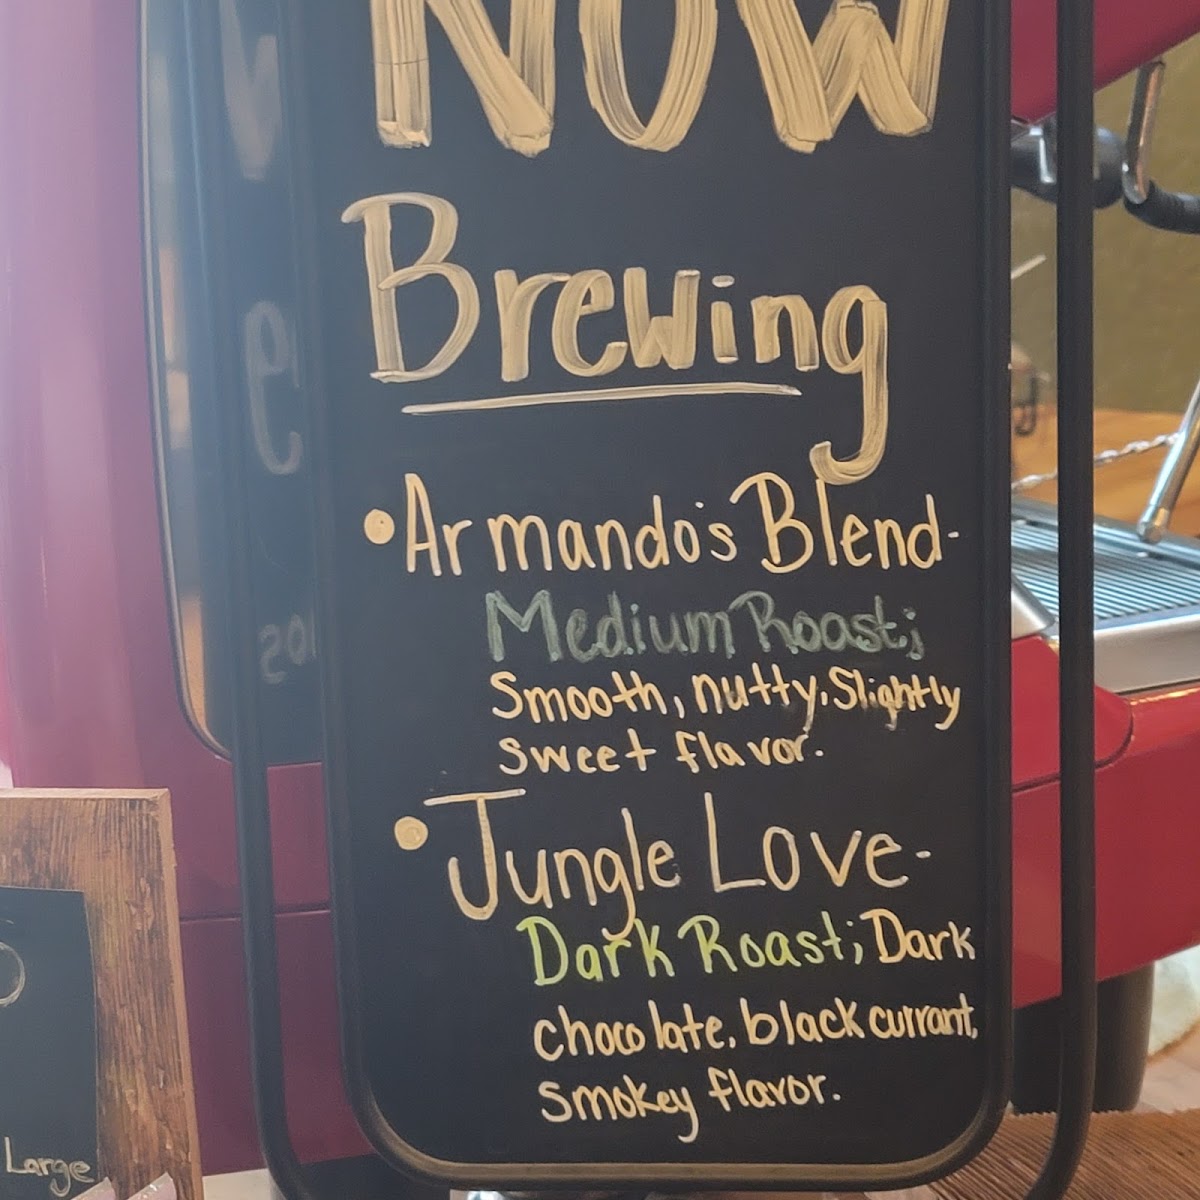 NOW
Brewing
•Armando's Blend-
Medium Roast;
Smooth, nutty, Slightly
sweet flavor.
•Jungle Love-
Dark Roast; Dark
chocolate, black currant,
smokey flavor.
Large